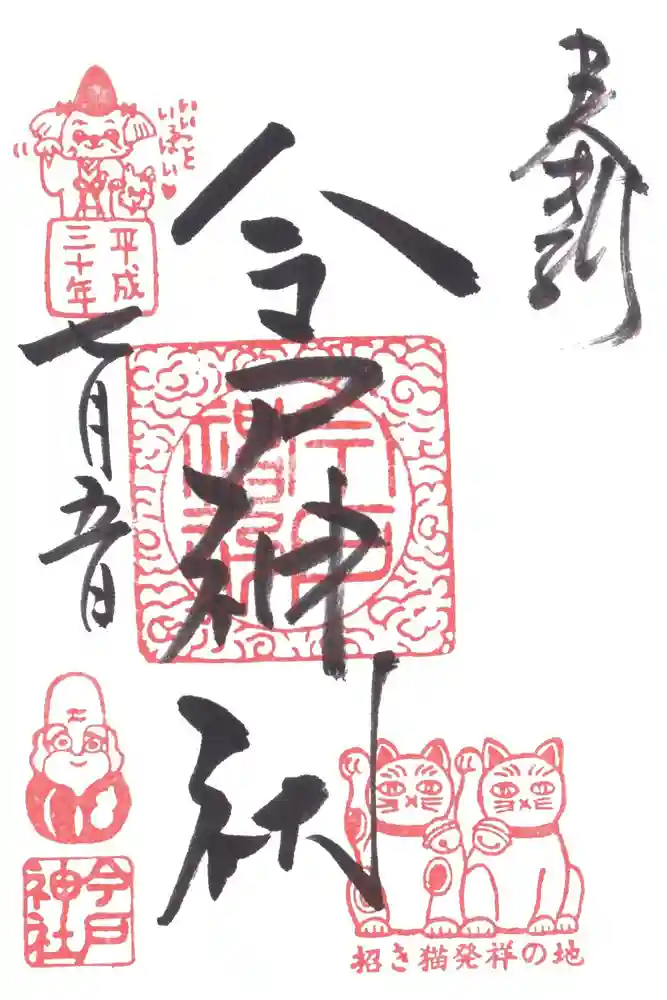 奉拝
今戸神社
今戸
神社
いいこと
いっぱい♥
平成
三十年
七月五日
今戸
神社
招き猫発祥の地